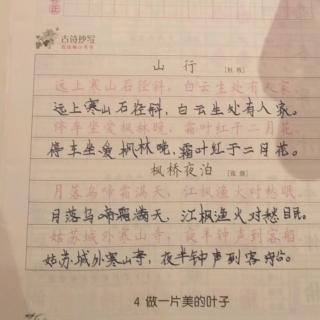 古诗抄写
山行
远上寒山石径斜，白云生处有人家。
远上寒山石径斜，白云生处有人家。
停车坐爱枫林晚，霜叶红于二月花。
停车坐爱枫林晚，霜叶红于二月花。
枫桥夜泊
月落乌啼霜满天，江枫渔火对愁眠。
月落乌啼霜满天，江枫渔火对愁眠。
姑苏城外寒山寺，夜半钟声到客船。
姑苏城外寒山寺，夜半钟声到客船。
4 做一片美的叶子